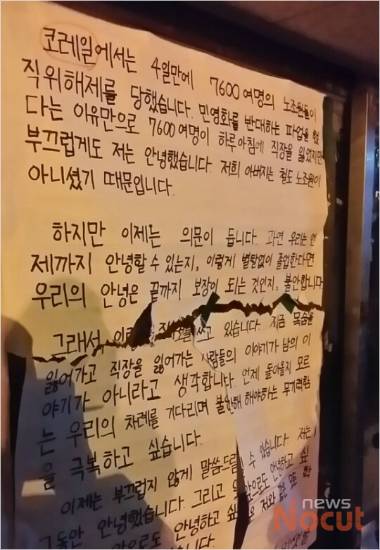 코레일에서는 4일만에 7600여명의 노조원들이
직위해제를 당했습니다. 민영화를 반대하는 파업을 했
다는 이유만으로 7600여명이 하루아침에 직장을 잃었지만
부끄럽게도 저는 안녕했습니다. 저희 아버지는 철도 노조원이
아니셨기 때문입니다.
하지만 이제는 의문이 듭니다. 과연 우리는 언
제까지 안녕할 수 있는지, 이렇게 별탈없이 졸업한다면
우리의 안녕은 끝까지 보장이 되는 것인지, 불안합니다
그래서 쓰고 있습니다. 지금 목숨을
잃어가고 직장을 잃어가는 사람들의 이야기가 남의 이
야기가 아니라고 생각합니다. 언제 돌아올지 모르
는 우리의 차례를 기다리며 불안해 해야하는 무기력함
을 극복하고 싶습니다.
이제는 부끄럽지 않게 말씀드릴 수 있습니다. 저는
그동안 안녕했습니다. 그리고 앞으로도 안녕하고 싶
안녕하고 싶은 저와 같은
news
Nocut